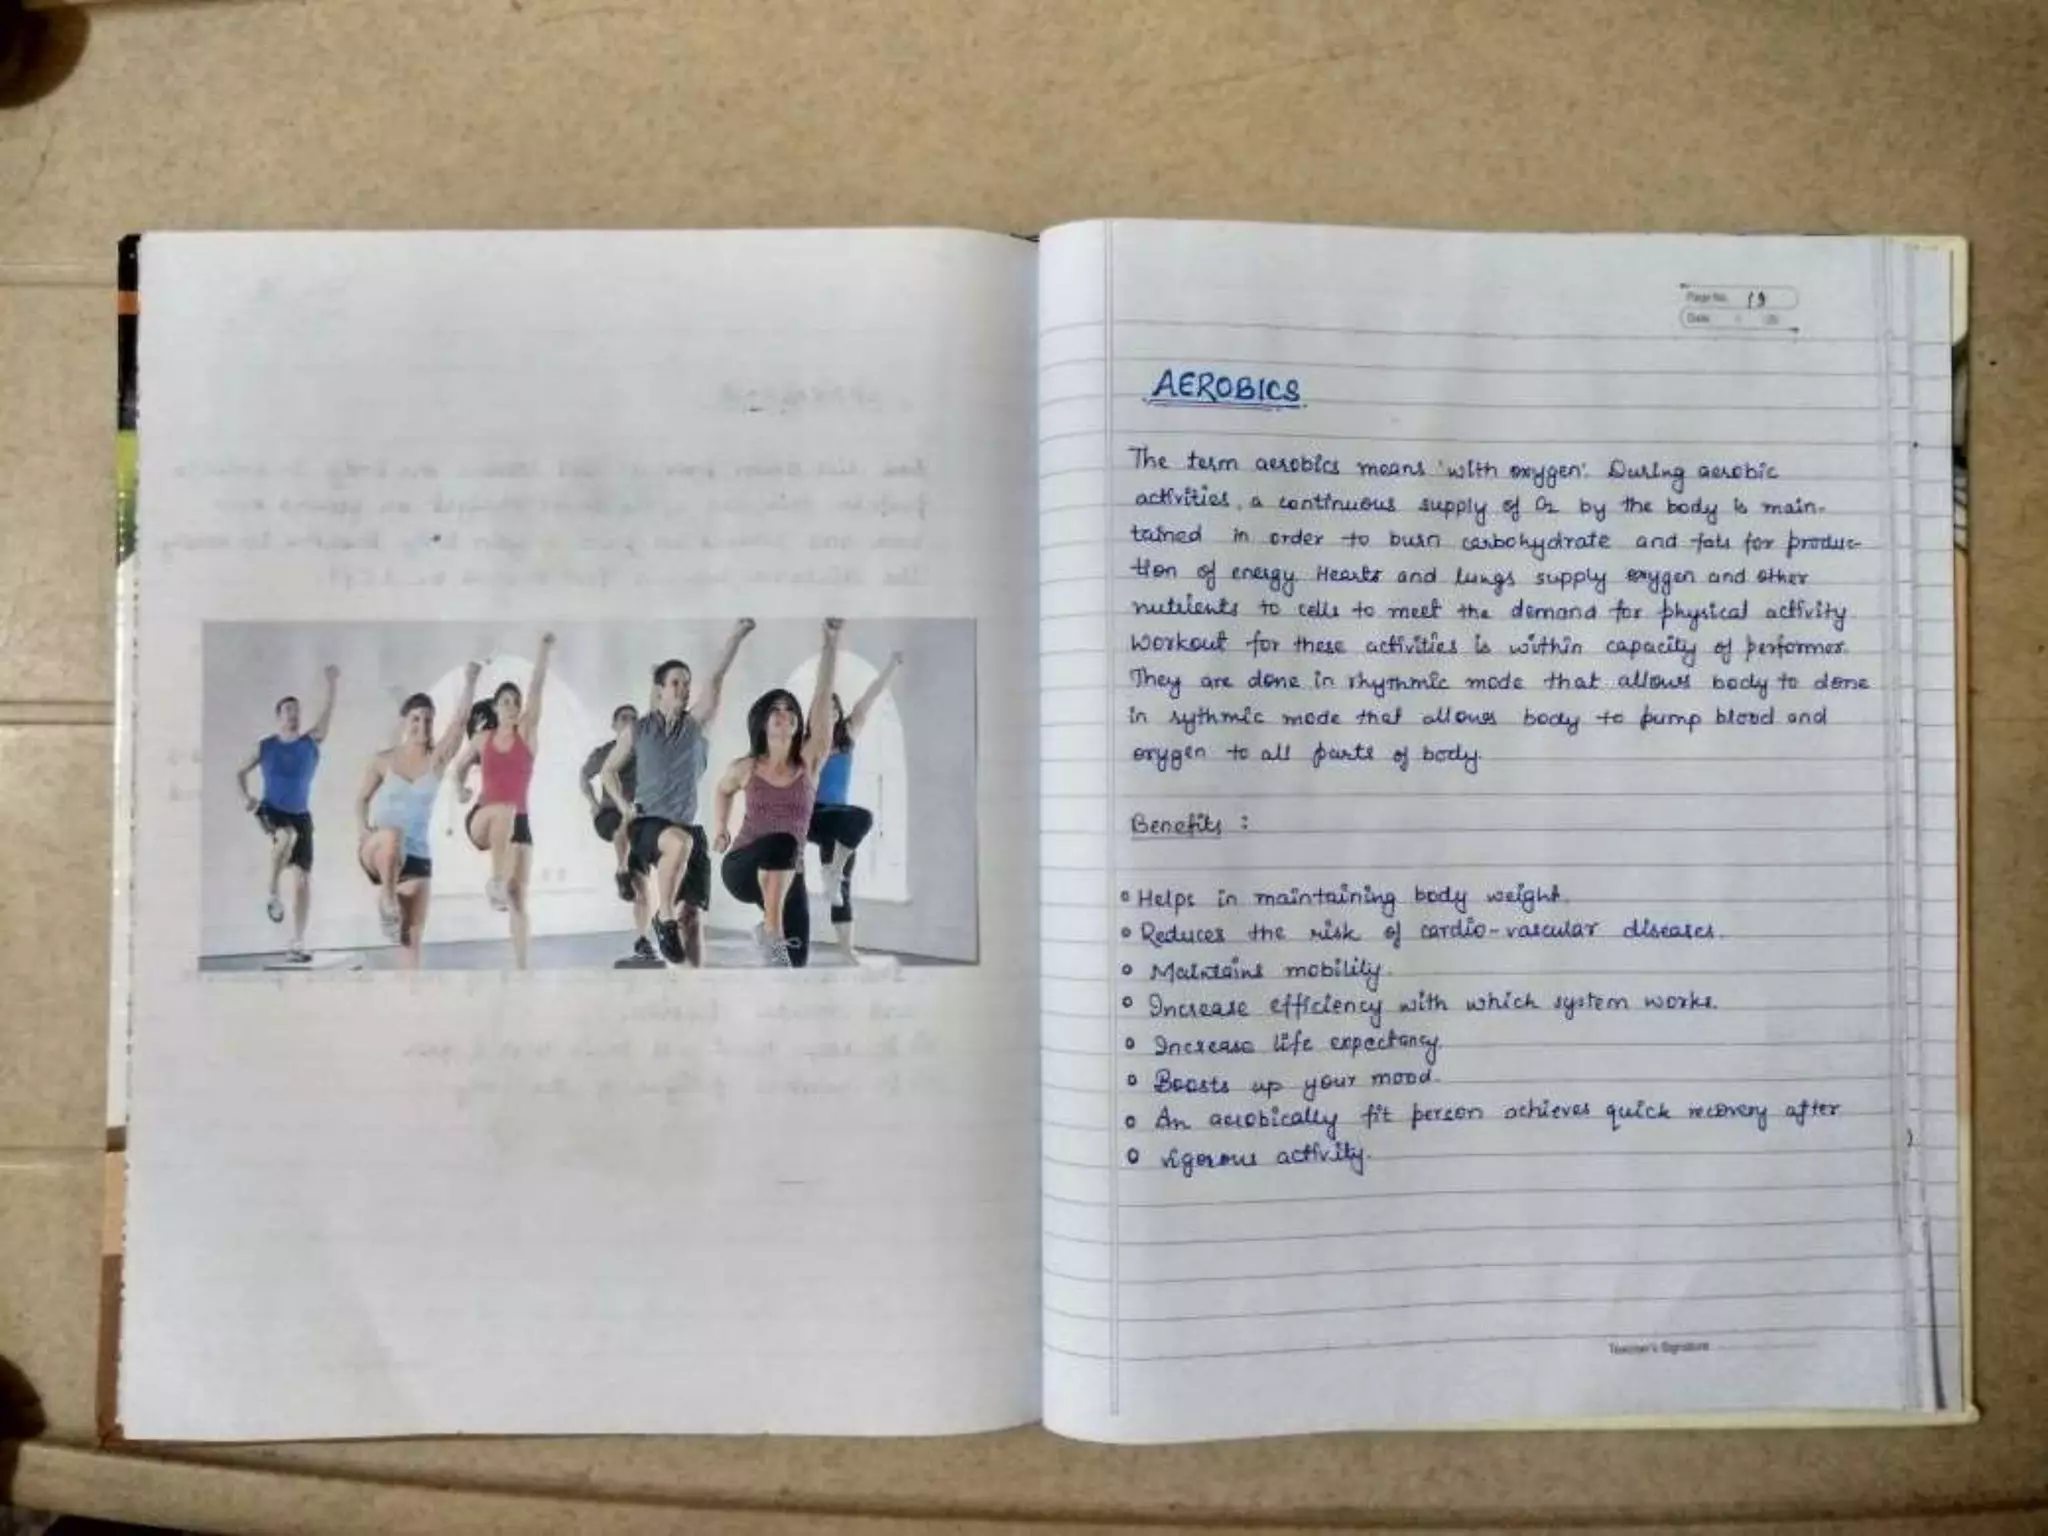 Page No. 19
Date
AEROBICS
The term aerobics means 'with oxygen'. During aerobic
activities, a continuous supply of O2 by the body is main-
tained in order to burn carbohydrate and fats for produc-
tion of energy. Hearts and lungs supply oxygen and other
nutrients to cells to meet the demand for physical activity
workout for these activities is within capacity of performer.
They are done in rhythmic mode that allows body to done
in rythmic mode that allows body to pump blood and
oxygen to all parts of body.
Benefits :
o Helps in maintaining body weight.
o Reduces the risk of cardio-vascular diseases.
o Maintains mobility.
o Increase efficiency with which system works.
o Increase life expectancy.
o Boosts up your mood.
o An aerobically fit person achieves quick recovery after
o vigorous activity.
Teacher's Signature